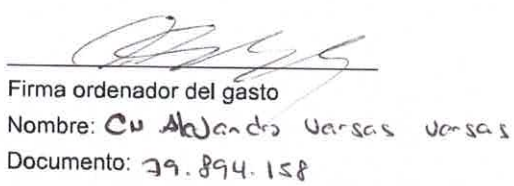 Firma ordenador del gasto
Nombre: CN Alejandro Vargas Vargas
Documento: 79.894.158